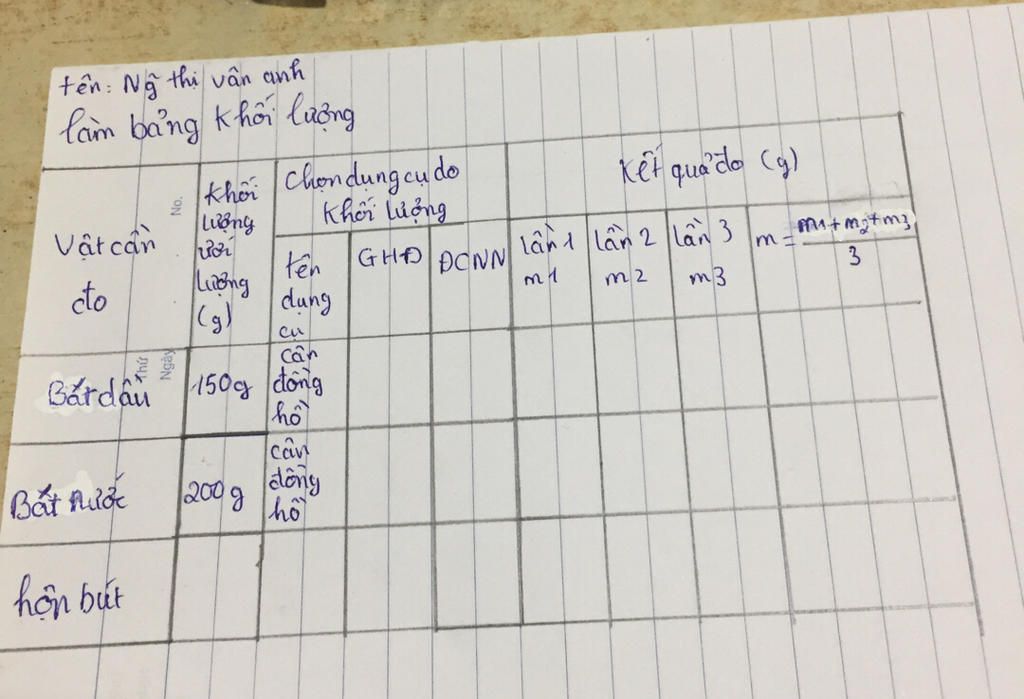 tên: Ng̃ thị vân anh
làm bảng khối lượng
No.
Vật cần
đo
Khối
lượng
ước
lượng
(g)
Chọn dụng cụ đo
khối lượng
Kết quả đo (g)
tên
dụng
cụ
GHĐ
ĐCNN
lần 1
m1
lần 2
m2
lần 3
m3
m = m1 + m2 + m3
3
Thứ
Ngày
Bát dầu
150g
cân
đồng
hồ
Bát nước
200g
cân
đồng
hồ
hộn bút